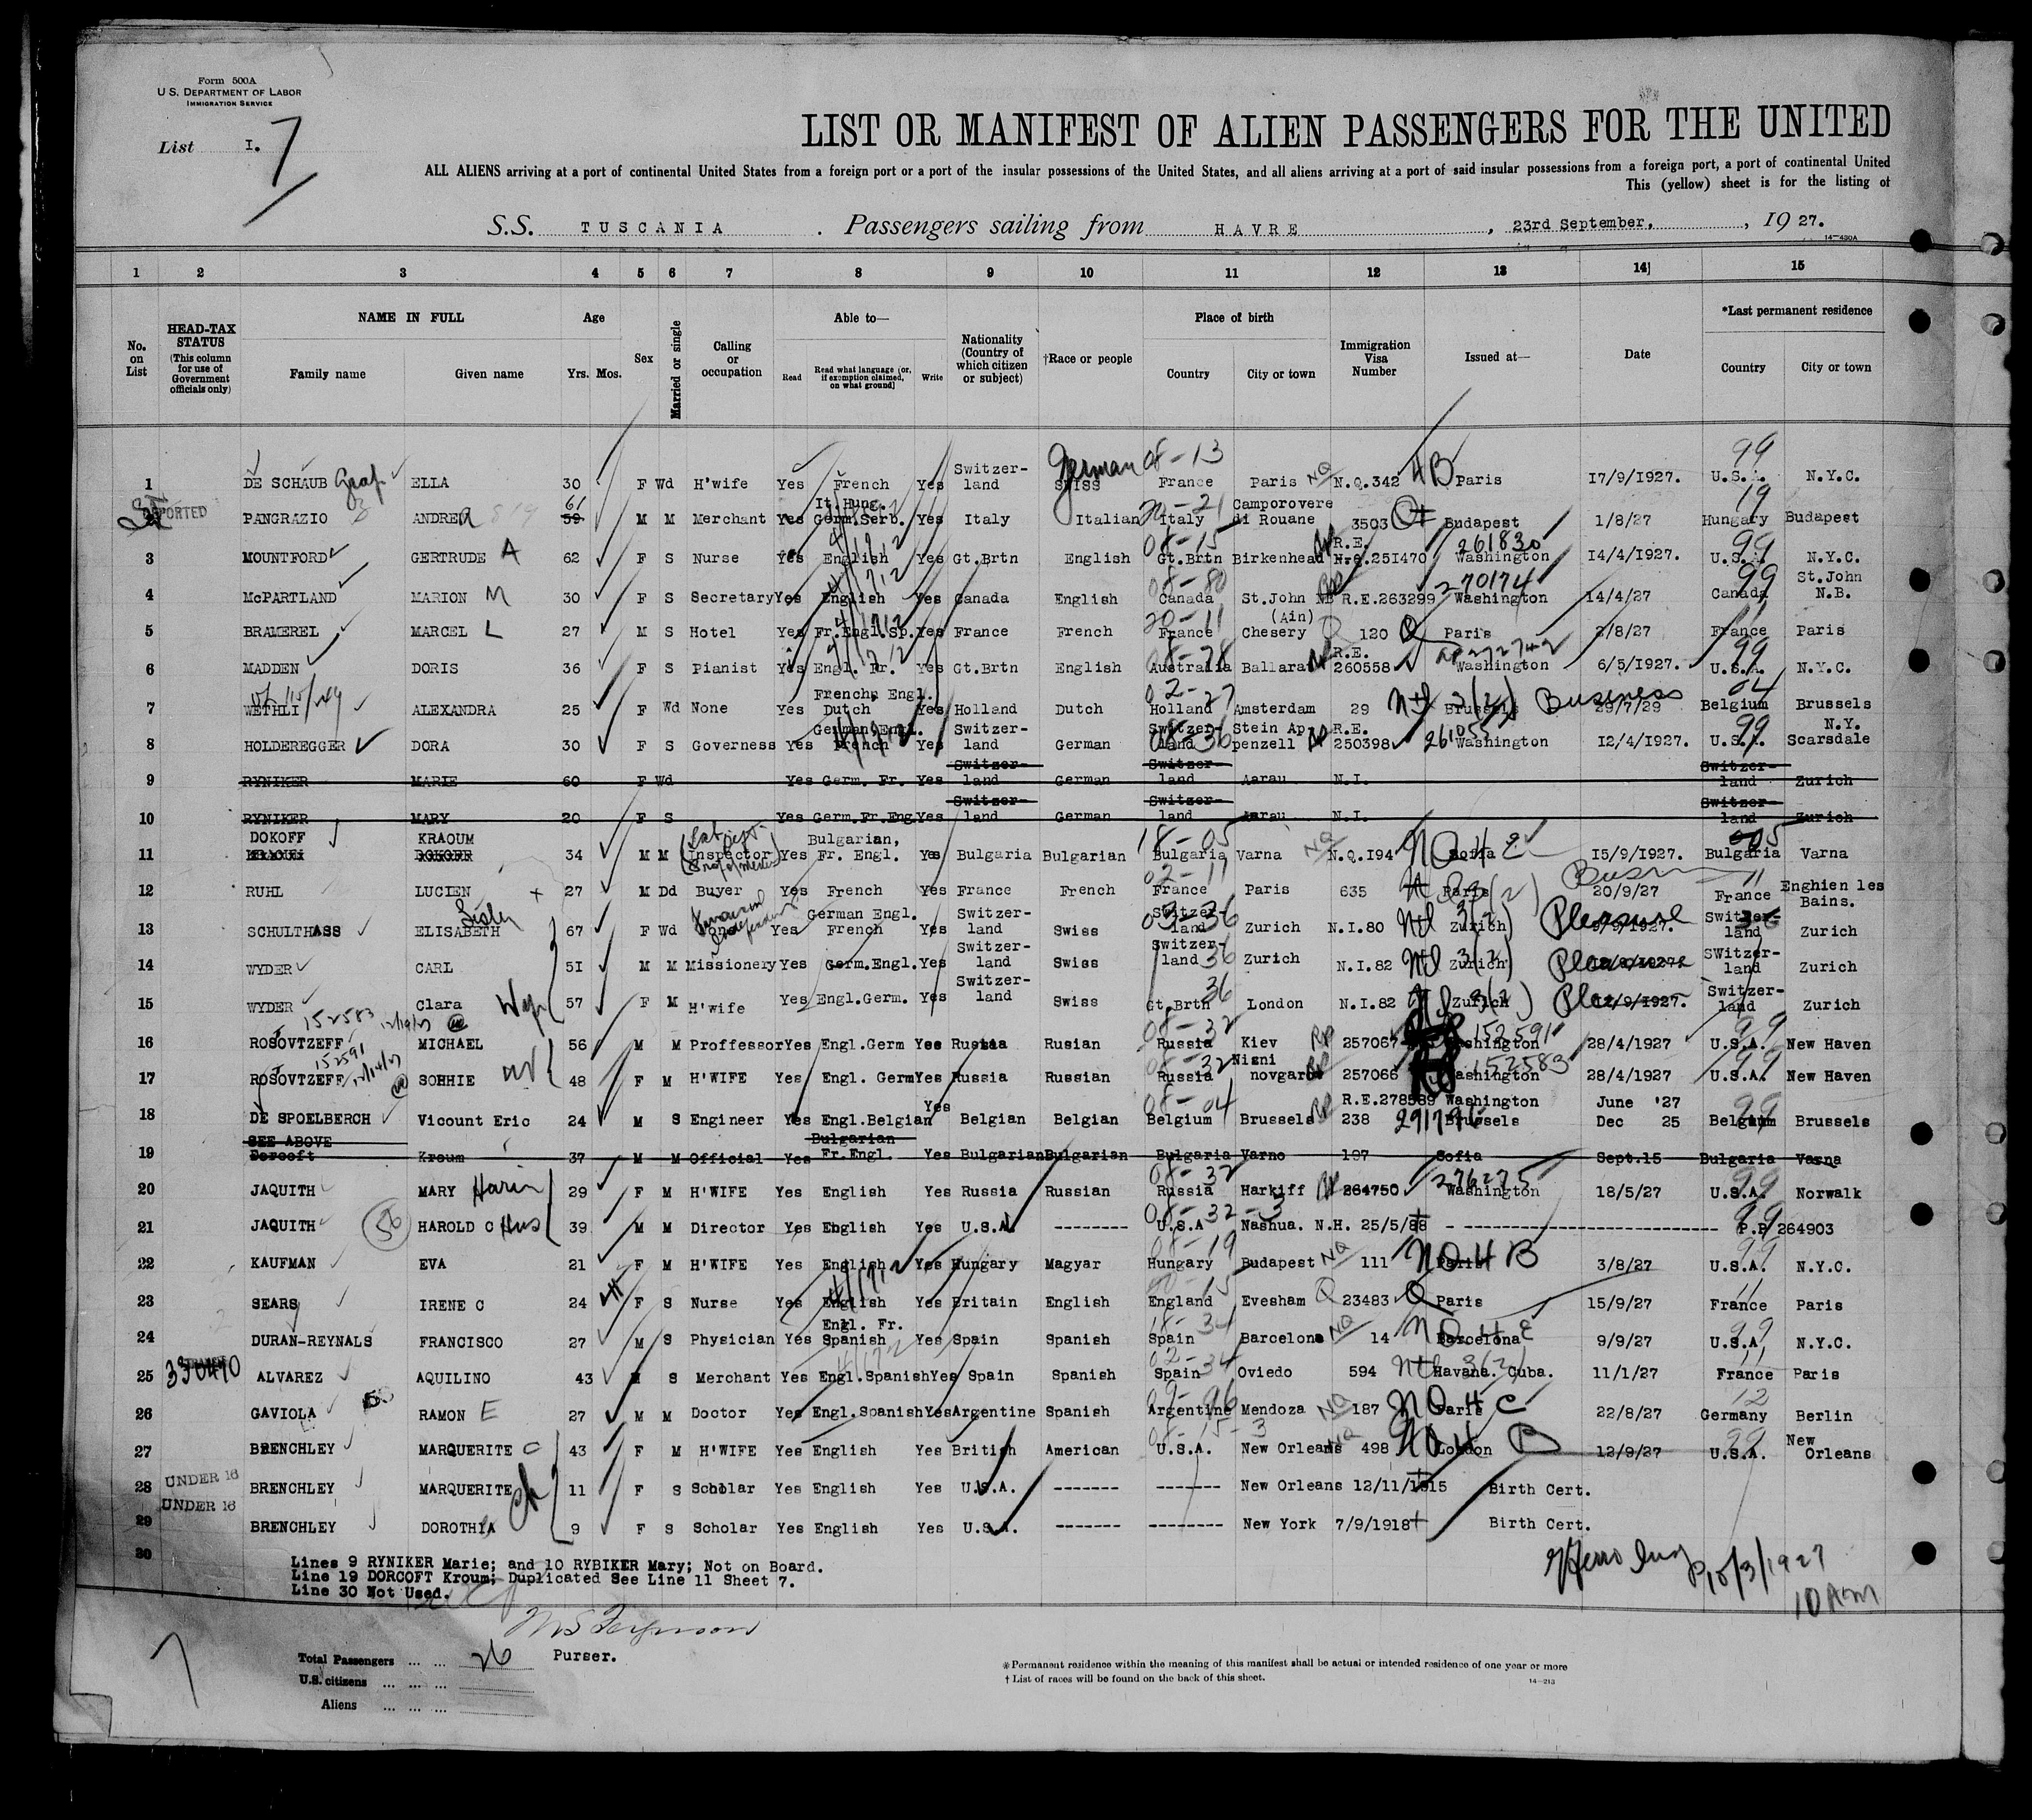 Form 500A
U.S. DEPARTMENT OF LABOR
IMMIGRATION SERVICE
List I. 7
LIST OR MANIFEST OF ALIEN PASSENGERS FOR THE UNITED
ALL ALIENS arriving at a port of continental United States from a foreign port or a port of the insular possessions of the United States, and all aliens arriving at a port of said insular possessions from a foreign port, a port of continental United
This (yellow) sheet is for the listing of
S.S. TUSCANIA. Passengers sailing from HAVRE, 23rd September, , 1927.
14—430A
1 2 3 4 5 6 7 8 9 10 11 12 13 14 15
No. on List
HEAD-TAX STATUS (This column for use of Government officials only)
NAME IN FULL Family name Given name
Age Yrs. Mos.
Sex
Married or single
Calling or occupation
Able to— Read Read what language (or, if exemption claimed, on what ground) Write
Nationality (Country of which citizen or subject)
†Race or people
Place of birth Country City or town
Immigration Visa Number
Issued at—
Date
*Last permanent residence Country City or town
1 DE SCHAUB Graf ELLA 30 F Wd H'wife Yes French Yes Switzer-land Swiss German 08-13 France Paris NQ N.Q.342 4B Paris 17/9/1927. 99 U.S.A. N.Y.C.
2 PANGRAZIO ANDREA 59 61 M M Merchant Yes It.Hung. Germ.Serb. Yes Italy Italian 20-21 Italy Camporovere di Rouane 3503 Q Budapest 1/8/27 19 Hungary Budapest
3 MOUNTFORD GERTRUDE A 62 F S Nurse Yes English Yes Gt.Brtn English 08-15 Gt.Brtn Birkenhead R.E. N.Q.251470 261830 Washington 14/4/1927. 99 U.S.A. N.Y.C.
4 McPARTLAND MARION M 30 F S Secretary Yes English Yes Canada English 08-80 Canada St.John NB R.E.263299 270174 Washington 14/4/27 99 Canada St.John N.B.
5 BRAMEREL MARCEL L 27 M S Hotel Yes Fr.Engl.Sp. Yes France French 20-11 France (Ain) Chesery Q 120 Q Paris 2/8/27 11 France Paris
6 MADDEN DORIS 36 F S Pianist Yes Engl. Fr. Yes Gt.Brtn English 08-78 Australia Ballarat R.E. 260558 272742 Washington 6/5/1927. 99 U.S.A. N.Y.C.
7 WETHLI ALEXANDRA 25 F Wd None Yes French, Engl. Dutch Yes Holland Dutch 02-27 Holland Amsterdam 29 3(2) Brussels Business 29/7/29 04 Belgium Brussels
8 HOLDEREGGER DORA 30 F S Governess Yes German Engl. French Yes Switzer-land German 08-36 Switzer-land Stein Appenzell R.E. 250398 261055 Washington 12/4/1927. 99 U.S.A. N.Y. Scarsdale
9 RYNIKER MARIE 60 F Wd Yes Germ. Fr. Yes Switzer-land German Switzer-land Aarau N.I. Switzer-land Zurich
10 RYNIKER MARY 20 F S Yes Germ.Fr.Eng Yes Switzer-land German Switzer-land Aarau N.I. Switzer-land Zurich
11 DOKOFF KRAOUM 34 M M Inspector Yes Bulgarian, Fr. Engl. Yes Bulgaria Bulgarian 18-05 Bulgaria Varna NQ N.Q.194 NO 4 E Sofia 15/9/1927. 05 Bulgaria Varna
12 RUHL LUCIEN 27 M Dd Buyer Yes French Yes France French 02-11 France Paris 635 3(2) Paris 20/9/27 11 France Enghien les Bains.
13 SCHULTHASS ELISABETH Sister 67 F Wd Yes German Engl. French Yes Switzer-land Swiss 03-36 Switzer-land Zurich N.I.80 3(2) Zurich Pleasure 9/9/1927. 36 Switzer-land Zurich
14 WYDER CARL 51 M M Missionery Yes Germ.Engl. Yes Switzer-land Swiss Switzer-land 36 Zurich N.I.82 3(2) Zurich Pleasure Switzer-land Zurich
15 WYDER Clara 57 F M H'wife Yes Engl.Germ. Yes Switzer-land Swiss 36 Gt.Brtn London N.I.82 3(2) Zurich 12/9/1927. Switzer-land Zurich
16 ROSOVTZEFF 152583 MICHAEL 56 M M Proffessor Yes Engl.Germ Yes Russia Rusian 08-32 Russia Kiev 257067 152591 Washington 28/4/1927 99 U.S.A. New Haven
17 ROSOVTZEFF 152591 SOHHIE 48 F M H'WIFE Yes Engl. Germ Yes Russia Russian 08-32 Russia Nizni novgarod 257066 152583 Washington 28/4/1927 99 U.S.A. New Haven
18 DE SPOELBERCH Vicount Eric 24 M S Engineer Yes Engl.Belgian Yes Belgian Belgian 08-04 Belgium Brussels R.E.278589 238 Washington 291796 Brussels June '27 Dec 25 99 Belgium Brussels
19 SEE ABOVE Dorcoft Kroum 37 M M Official Yes Bulgarian Fr.Engl. Yes Bulgarian Bulgarian Bulgaria Varno 197 Sofia Sept.15 Bulgaria Varna
20 JAQUITH MARY 29 F M H'WIFE Yes English Yes Russia Russian 08-32 Russia Harkiff 264750 276275 Washington 18/5/27 99 U.S.A. Norwalk
21 JAQUITH HAROLD C Hus 39 M M Director Yes English Yes U.S.A. -------- 08-32-3 U.S.A Nashua. N.H. 25/5/88 -------- 99 P.P 264903
22 KAUFMAN EVA 21 F M H'WIFE Yes English Yes Hungary Magyar 08-19 Hungary Budapest NQ 111 NO 4 B Paris 3/8/27 99 U.S.A. N.Y.C.
23 SEARS IRENE C 24 F S Nurse Yes English Yes Britain English England Evesham Q 23483 Q Paris 15/9/27 11 France Paris
24 DURAN-REYNALS FRANCISCO 27 M S Physician Yes Engl. Fr. Spanish Yes Spain Spanish 18-34 Spain Barcelona NQ 14 NO 4 E Barcelona 9/9/27 99 U.S.A. N.Y.C.
25 ALVAREZ AQUILINO 43 M S Merchant Yes Engl.Spanish Yes Spain Spanish 02-34 Spain Oviedo 594 3(2) Havana. Cuba. 11/1/27 11 France Paris
26 GAVIOLA RAMON E 27 M M Doctor Yes Engl.Spanish Yes Argentine Spanish Argentine Mendoza NQ 187 NO 4 C Paris 22/8/27 12 Germany Berlin
27 BRENCHLEY MARQUERITE C 43 F M H'WIFE Yes English Yes British American 08-15-3 U.S.A. New Orleans NQ 498 NO 4 B London 12/9/27 99 U.S.A. New Orleans
UNDER 16
28 BRENCHLEY MARQUERITE 11 F S Scholar Yes English Yes U.S.A. ------- ------- New Orleans 12/11/1915 Birth Cert.
UNDER 16
29 BRENCHLEY DOROTHYA 9 F S Scholar Yes English Yes U.S.A. ------- -------- New York 7/9/1918 Birth Cert.
30
Lines 9 RYNIKER Marie; and 10 RYBIKER Mary; Not on Board.
Line 19 DORCOFT Kroum; Duplicated See Line 11 Sheet 7.
Line 30 Not Used.
10/3/1927
10 AM
7
Purser.
Total Passengers ... ... 26
U.S. citizens ... ... ...
Aliens ... ... ...
*Permanent residence within the meaning of this manifest shall be actual or intended residence of one year or more
† List of races will be found on the back of this sheet.
14—213